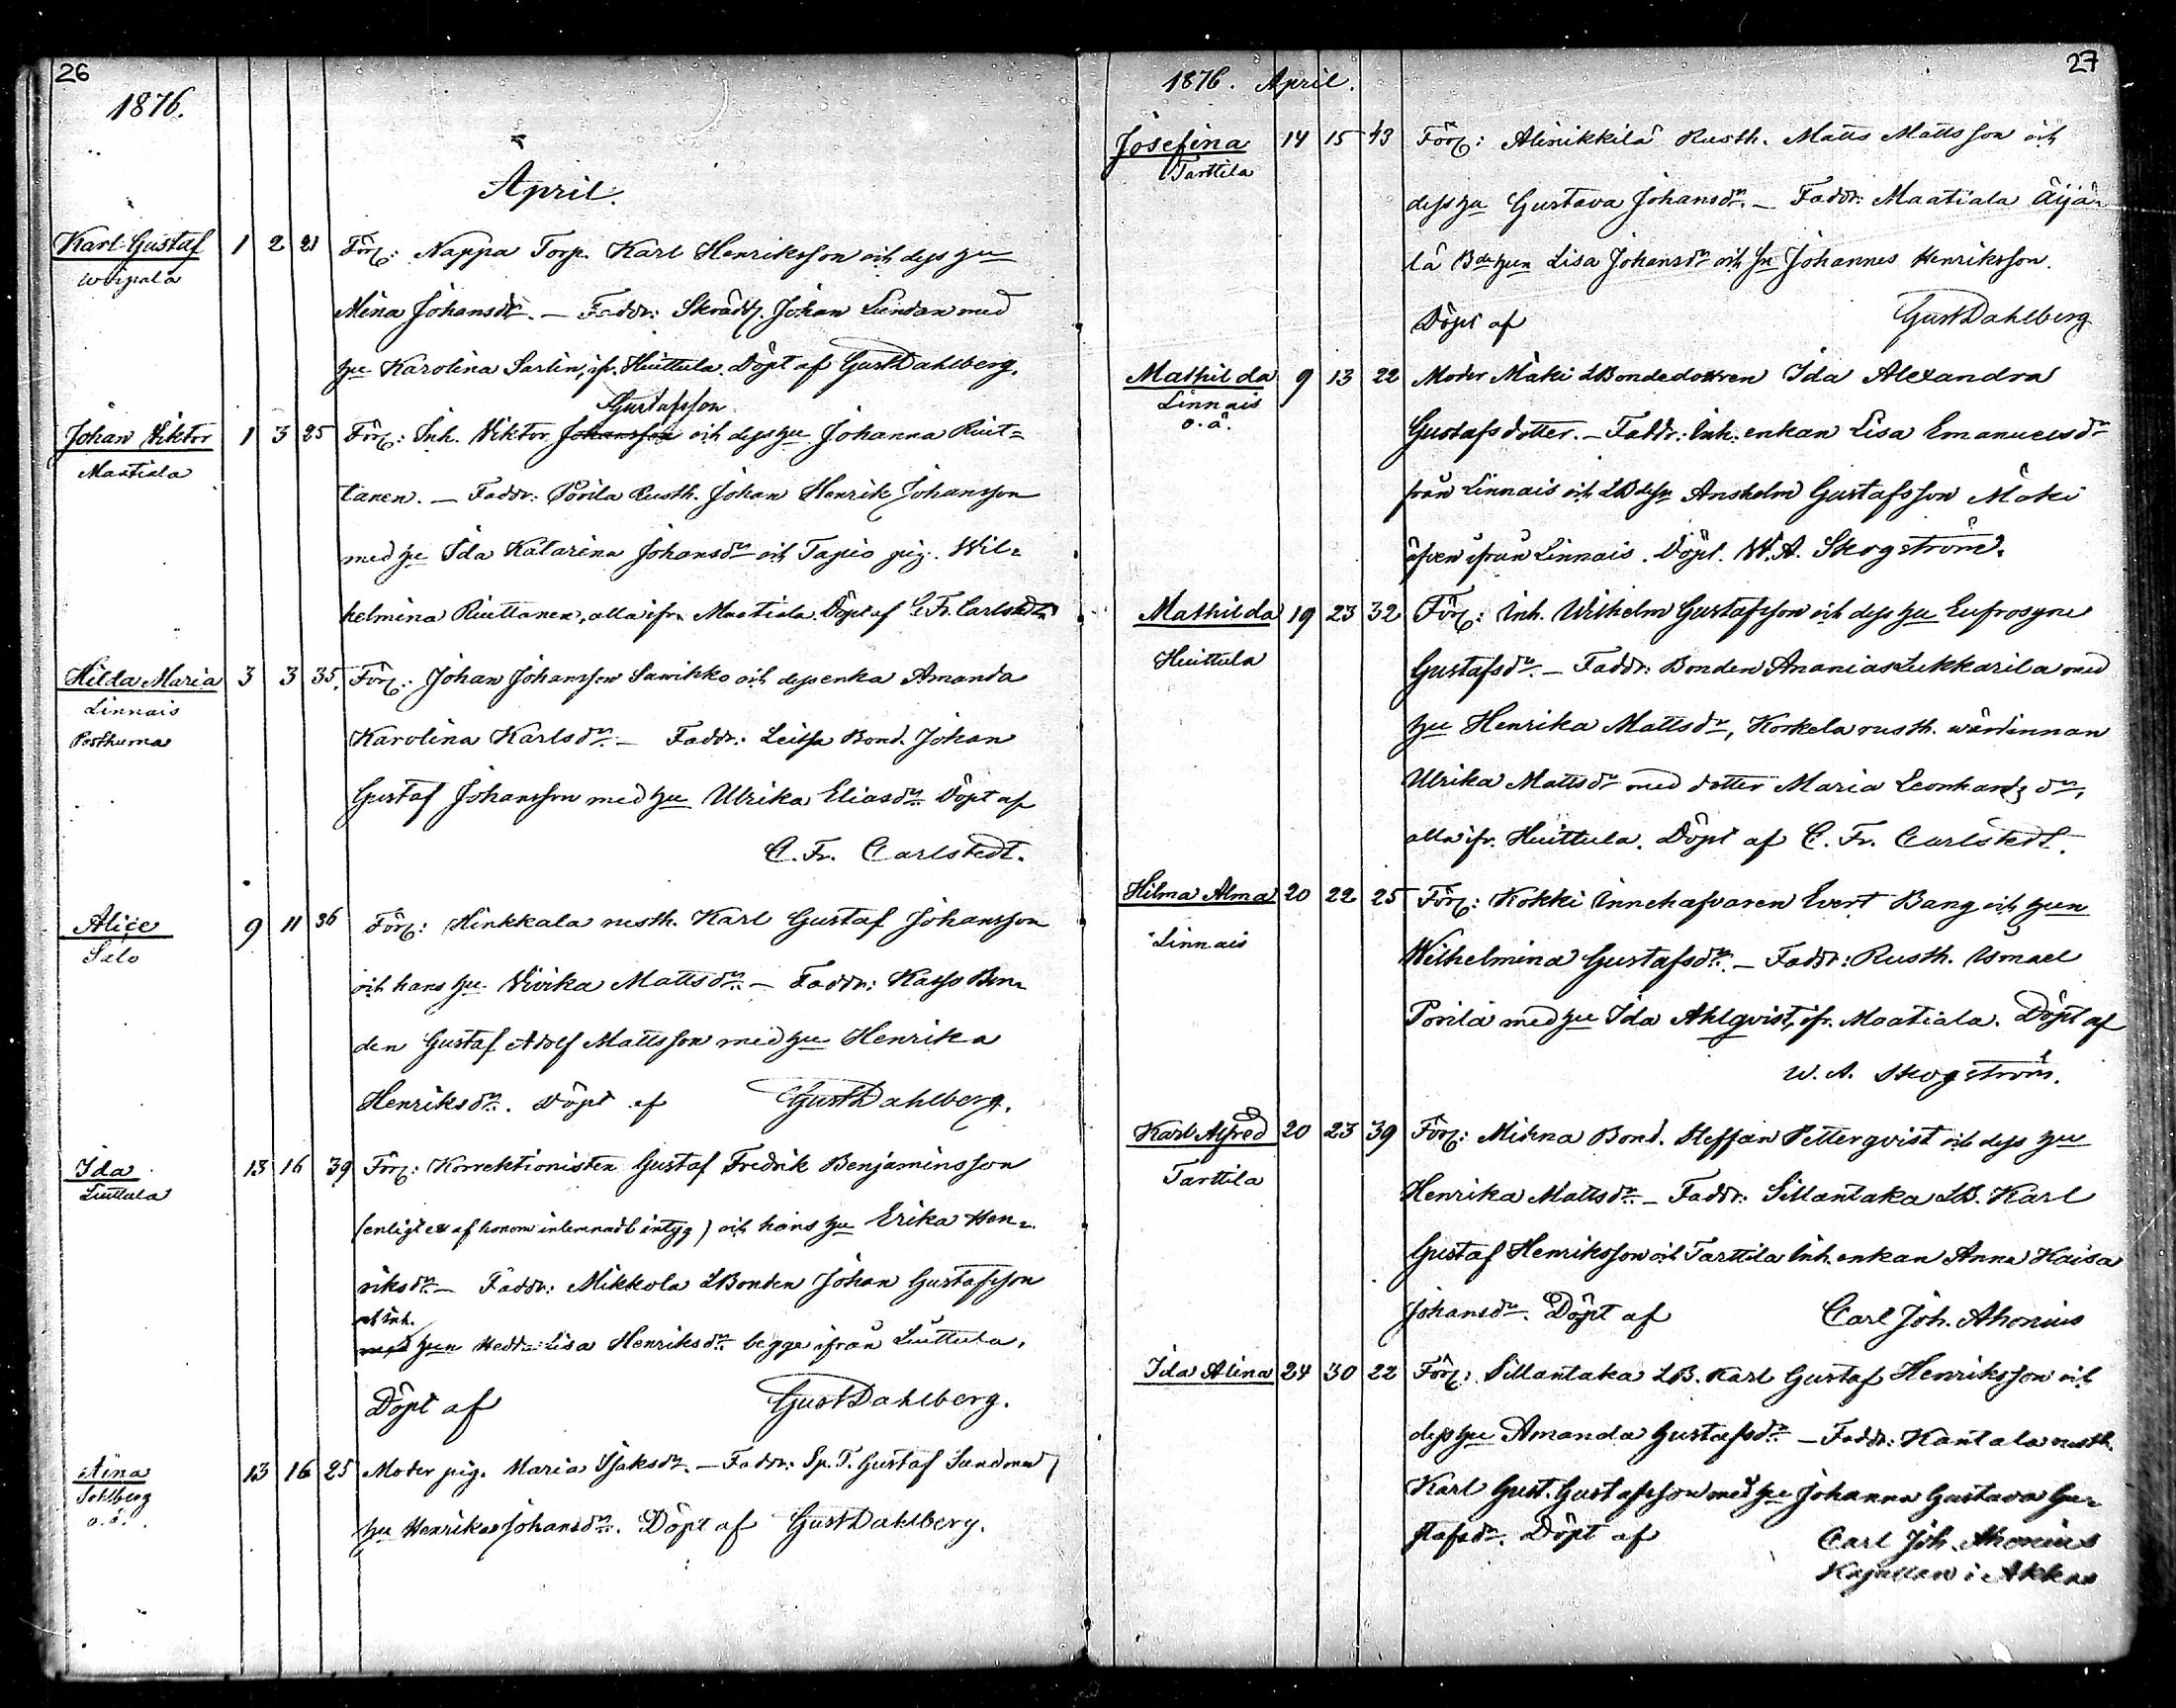 26
1876.
April.
Karl Gustaf 1 2 21 Förz: Nappa Torp. Karl Henriksson och dess hu
Woipala
Mina Johansdr. — Faddr: Skräddz. Johan Lindan med
hu Karolina Sarlin, ifr. Huittula. Döpt af Gust Dahlberg.
Gustafsson
Johan Viktor 1 3 25 Förz: Inh. Viktor Johansson och dess hu Johanna Riut=
Maatiala
tanen. — Faddr: Pörilä Rusth. Johan Henrik Johansson
med hu Ida Katarina Johansdr och Tapio pig. Wil=
helmina Riuttanen, alla ifr. Maatiala. Döpt af C. Fr. Carlstedt
Hilda Maria 3 3 35. Förz: Johan Johansson Sawikko och dess enka Amanda
Linnais
Posthuma
Karolina Karlsdr. — Faddr: Leissa Bond. Johan
Gustaf Johansson med hu Ulrika Eliasdr. Döpt af
C. Fr. Carlstedt.
Alice 9 11 36 Förz: Hinkkala rusth. Karl Gustaf Johansson
Salo
och hans hu. Vivika Mattsdr. — Faddr: Kasso Bon=
den Gustaf Adolf Mattsson med hu Henrika
Henriksdr. Döpt af Gust Dahlberg.
Ida 13 16 39 Förz: Korrektionisten Gustaf Fredrik Benjaminsson
Liuttula
(enligt af honom inlemnadt intyg) och hans hu Erika Hen=
riksdr. — Faddr: Mikkola LBonden Johan Gustafsson
och Inh.
med hun Hedda Lisa Henriksdr. begge ifrån Liuttula.
Döpt af Gust Dahlberg.
Aina 13 16 25 Moder pig. Maria Isaksdr. — Faddr: Sp. T. Gustaf Sandman
Sohlberg
o. ä.
hu Henrika Johansdr. Döpt af Gust Dahlberg.
27
1876. April.
Josefina 14 15 43 Förz: Alinikkilä Rusth. Matts Mattsson och
Tarttila
dess hu Gustava Johansdr. — Faddr: Maatiala Äijä=
lä Bdehun Lisa Johansdr och Sn Johannes Henriksson.
Döpt af Gust Dahlberg
Mathilda 9 13 22 Moder Mäki LBondedottren Ida Alexandra
Linnais
o. ä.
Gustafsdotter. — Faddr: Inh. enkan Lisa Emanuelsdr
från Linnais och LBdesn Anshelm Gustafsson Mäki
äfven ifrån Linnais. Döpt. W. A. Skogström.
Mathilda 19 23 32 Förz: Inh. Wilhelm Gustafsson och dess hu Eufrosyne
Huittula
Gustafsdr. — Faddr: Bonden Ananias Lukkarila med
hu Henrika Mattsdr, Korkela rusth. wärdinnan
Ulrika Mattsdr med dotter Maria Leonhardz dr,
alla ifr. Huittula. Döpt af C. Fr. Carlstedt.
Hilma Alma 20 22 25 Förz: Kokki Innehafvaren Evert Bang och hun
Linnais
Wilhelmina Gustafsdr. — Faddr: Rusth. Ismael
Pörilä med hu Ida Ahlqvist, ifr. Maatiala. Döpt af
W. A. Skogström.
Karl Alfred 20 23 39 Förz: Mickna Bond. Steffan Petterqvist och dess hu
Tarttila
Henrika Mattsdr. — Faddr: Sillantaka LB. Karl
Gustaf Henriksson och Tarttila Inh. enkan Anna Kaisa
Johansdr. Döpt af Carl Joh. Ahonius
Ida Alina 24 30 22 Förz: Sillantaka LB. Karl Gustaf Henriksson och
dess hu Amanda Gustafsdr. — Faddr: Kantala rusth.
Karl Gust. Gustafsson med hu Johanna Gustava Gu=
stafsdr. Döpt af Carl Joh. Ahonius
Kapellan i Akkas